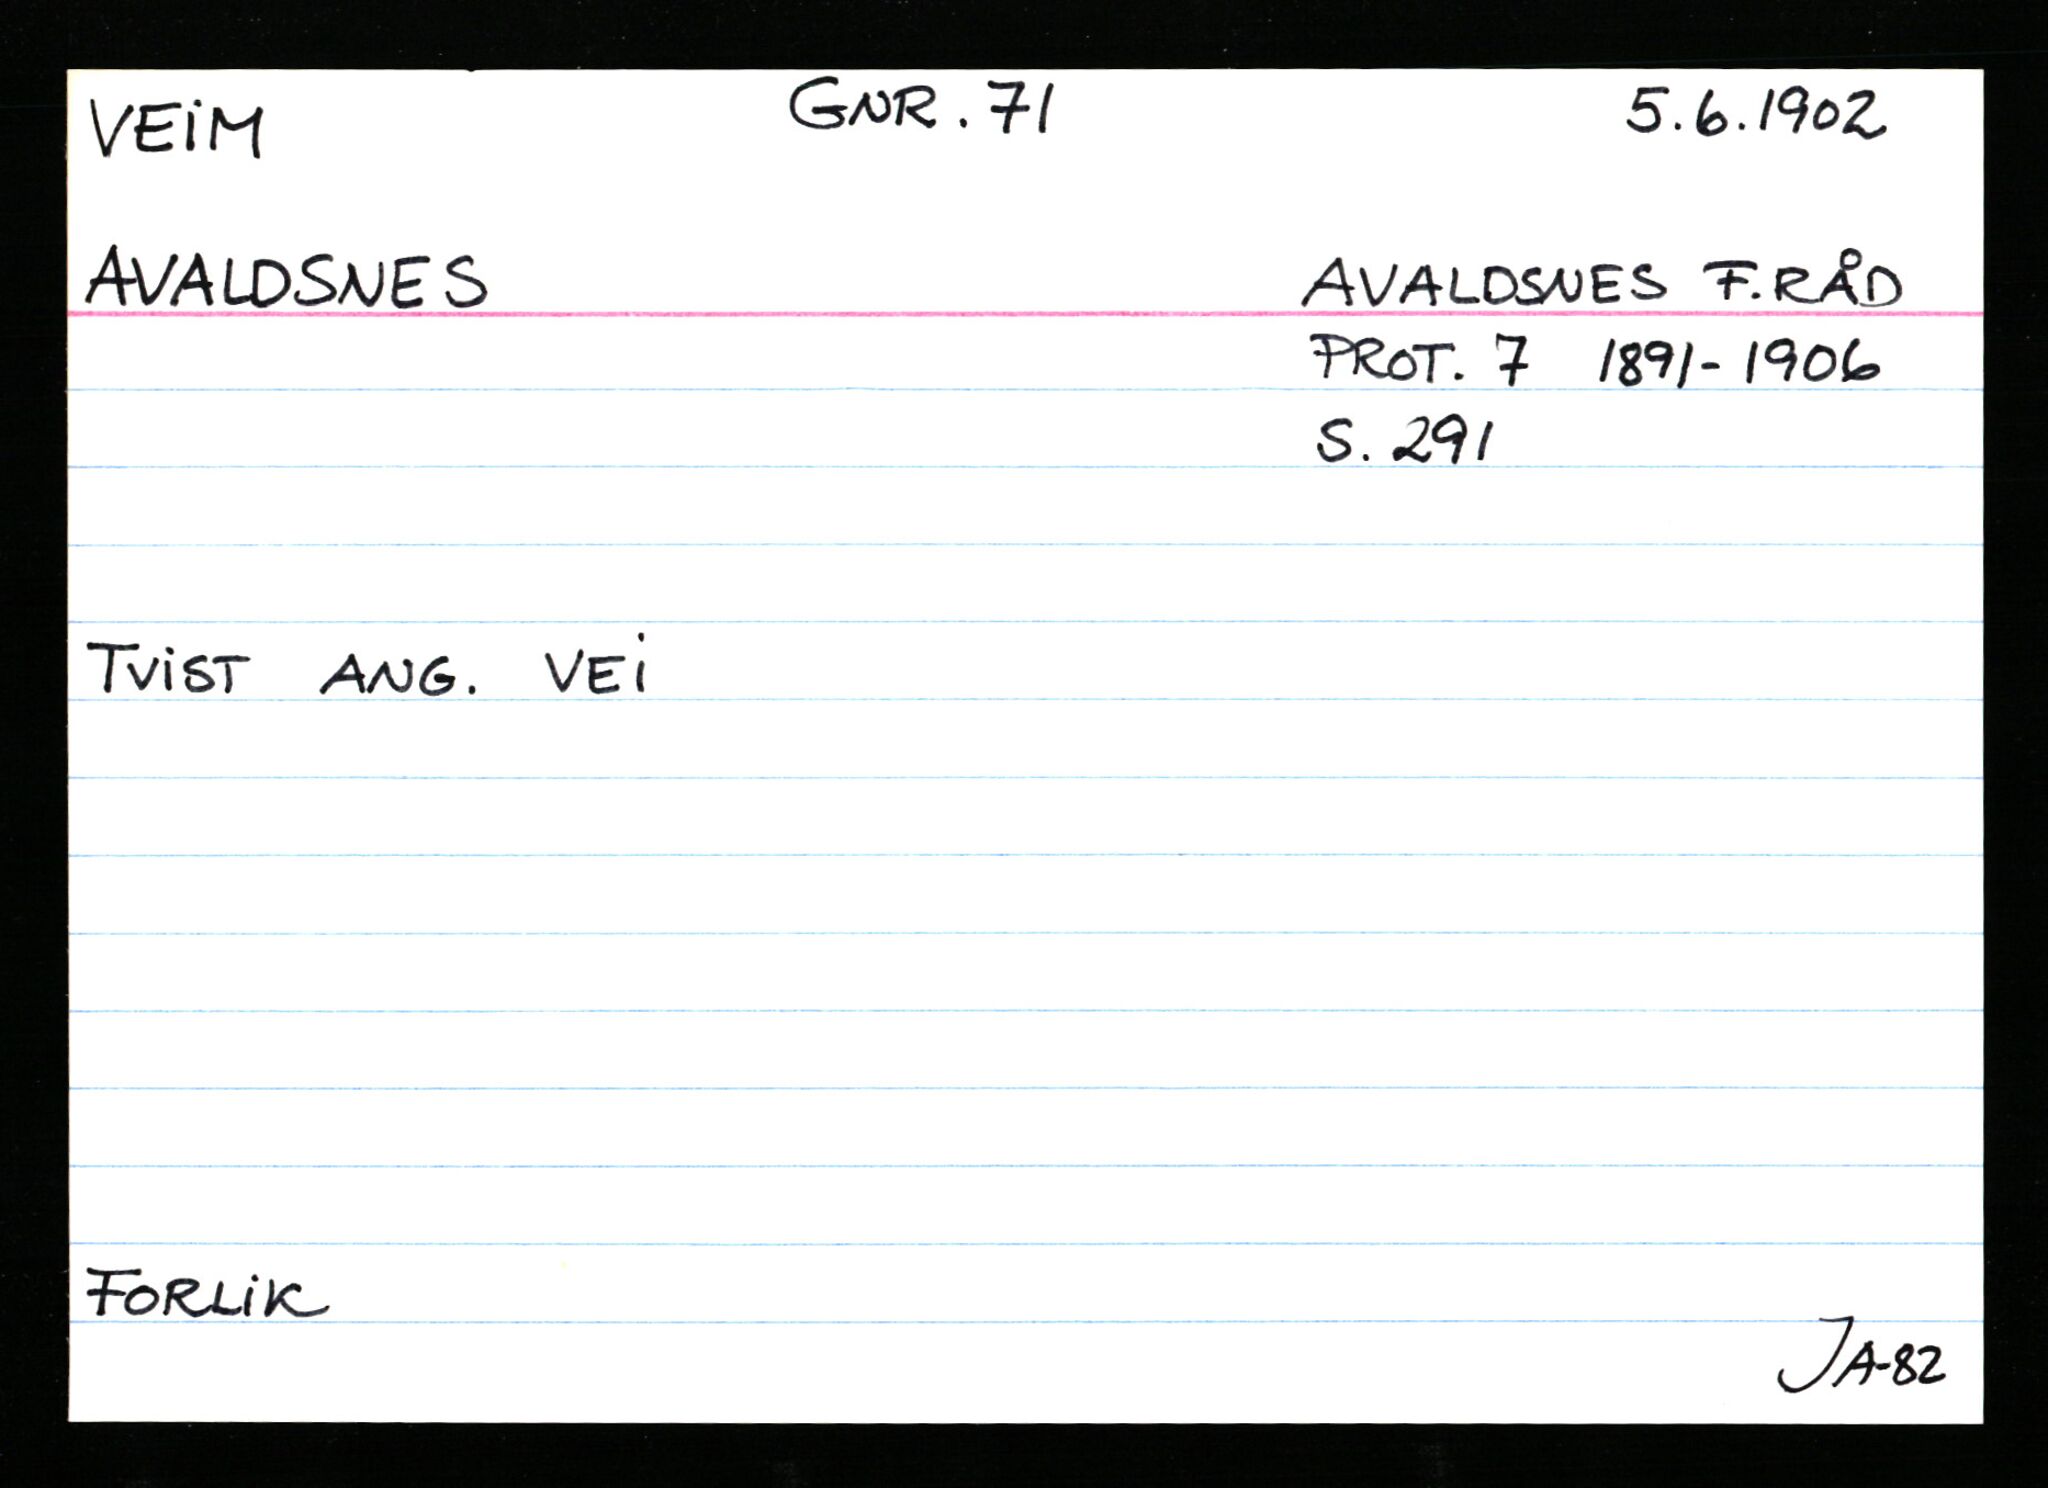 VEIM GNR. 71 5.6.1902
AVALDSNES AVALDSNES F.RÅD
PROT. 7 1891-1906
S. 291
TVIST ANG. VEI
FORLIK
JA-82